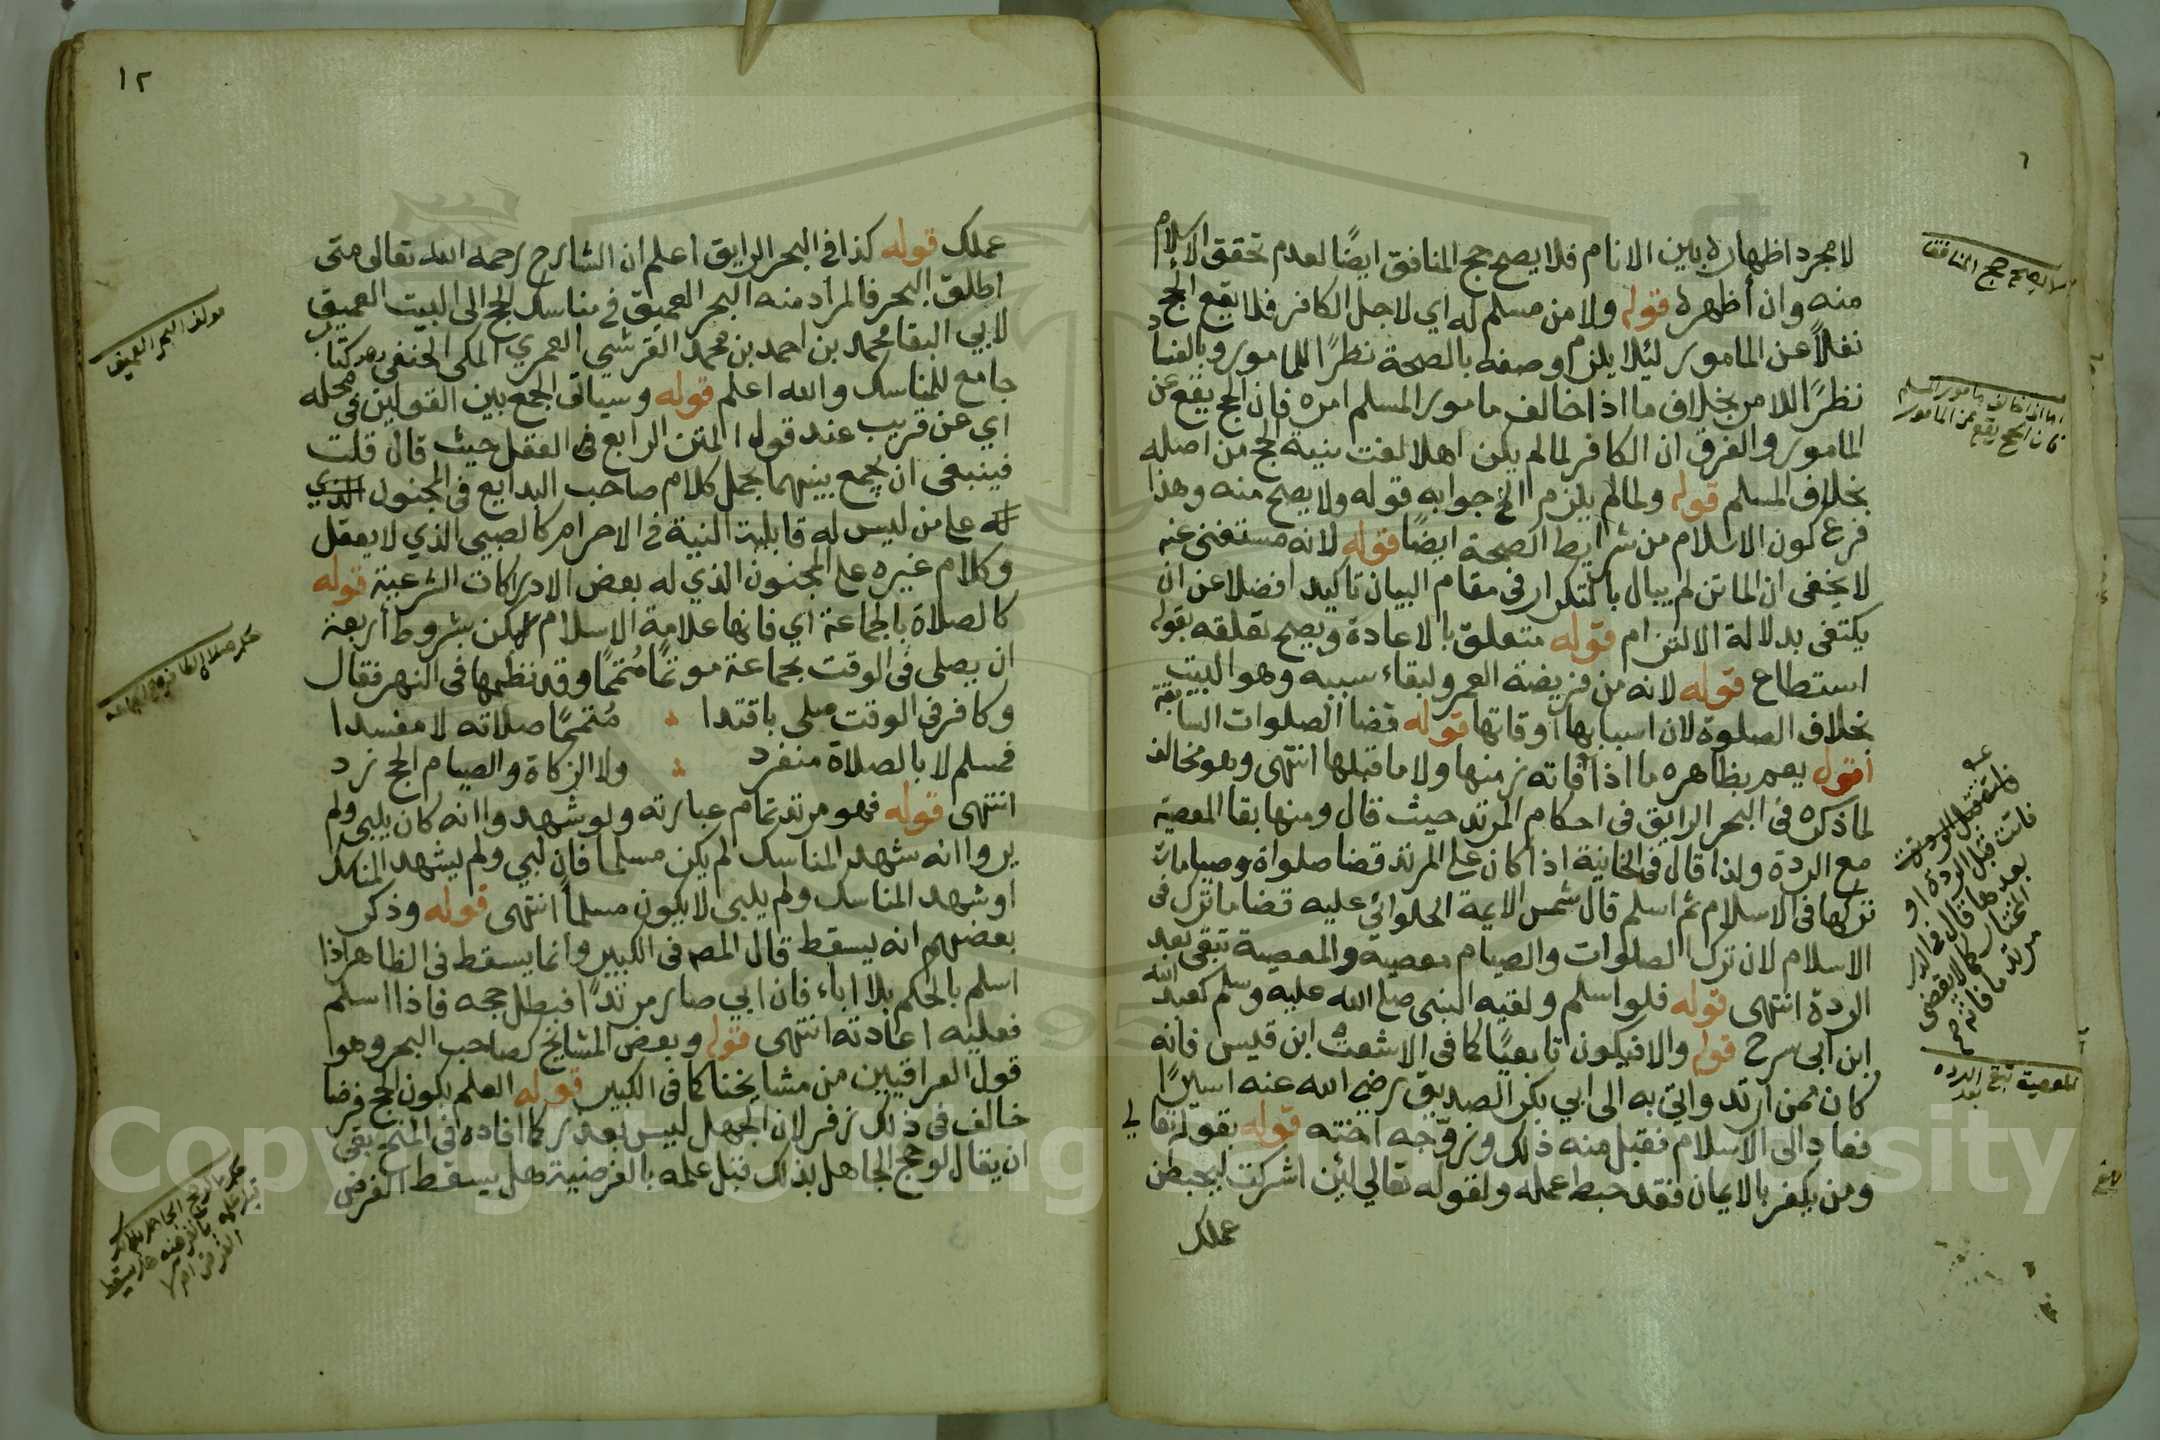 لا مجرد اظهاره بين الانام فلا يصح حج المنافق ايضًا لعدم تحقق الاسلام
منه وان أظهره قوله ولا من مسلم له اي لاجل الكافر فلا يقع الحج
نفلاً عن المامور لئلا يلزم وصفه بالصحة نظرًا للمامور وبالفساد
نظرًا للامر بخلاف ما اذا خالف مامور المسلم امره فان الحج يقع عن
المامور والفرق ان الكافر لما لم يكن اهلا لغت نيته للحج من اصله
بخلاف المسلم قوله ولما لم يلزم الخ جوابه قوله ولا يصح منه وهذا
فرع كون الاسلام من شرايط الصحة ايضًا قوله لانه مستغنى عنه
لا يخفى ان الماتن لم يبال بالتكرار في مقام البيان تاكيدا فضلا عن ان
يكتفى بدلالة الالتزام قوله متعلق بالاعادة ويصح تعلقه بقوله
استطاع قوله لانه من فريضة العمر ولبقاء سببه وهو البيت
بخلاف الصلوة لان اسبابها أوقاتها قوله قضا الصلوات السابقة
أقول يعم بظاهره ما اذا فاته زمنها ولا ما قبلها انتهى وهو مخالف
لما ذكره في البحر الرايق في احكام المرتد حيث قال ومنها بقا المعصية
مع الردة ولذا قال في الخانية اذا كان على المرتد قضا صلواة وصيامات
تركها في الاسلام ثم اسلم قال شمس الايمة الحلوائي عليه قضا ما ترك في
الاسلام لان ترك الصلوات والصيام معصية والمعصية تبقى بعد
الردة انتهى قوله فلو اسلم ولقيه النبي صلى الله عليه وسلم كعبد الله
ابن ابي سرح قوله والا فيكون تابعيًا كما في الاشعث ابن قيس فانه
كان ممن ارتد واتي به الى ابي بكر الصديق رضي الله عنه اسيرًا
فعاد الى الاسلام فقبل منه ذلك وزوّجه اخته قوله بقوله تعالى
ومن يكفر بالايمان فقد حبط عمله ولقوله تعالى لئن اشركت ليحبطن
عملك
لا يصح حج المنافق
اما اذا خالف مامور المسلم
فان الحج يقع عن المامور
فاتت قبل الردة او
بعدها قال في الدر
المختار كما لا يقضي
مرتد ما فاته
المعصية تبقى بعد الرده
١٢
عملك قوله كذا في البحر الرايق اعلم ان الشارح رحمه الله تعالى متى
اطلق البحر فالمراد منه البحر العميق في مناسك الحج الى البيت العتيق
لابي البقا محمد بن احمد بن محمد القرشي العمري المكي الحنفي وهو كتاب
جامع للمناسك والله اعلم قوله وسياتي الجمع بين القولين في محله
اي عن قريب عند قول المتن الرابع في العقل حيث قال قلت
فينبغي ان يجمع بينهما بحمل كلام صاحب البدايع في المجنون الذي
له على من ليس له قابلية النية في الاحرام كالصبي الذي لا يعقل
وكلام غيره على المجنون الذي له بعض الادراكات الشرعية قوله
كالصلاة بالجماعة اي فانها علامة الاسلام لكن بشروط أربعة
ان يصلى في الوقت بجماعة موتمًا مُتممًا وقد نظمها في النهر فقال
وكافر في الوقت صلى باقتدا مُتممًا صلاته لا مفسدا
فمسلم لا بالصلاة منفرد ولا الزكاة والصيام الحج زد
انتهى قوله فهو مرتد تمام عبارته ولو شهدوا انه كان يلبي ولم
يروا انه شهد المناسك لم يكن مسلما فان لبي ولم يشهد المناسك
او شهد المناسك ولم يلبي لا يكون مسلماً انتهى قوله وذكر
بعضهم انه يسقط قال المص في الكبير وانما يسقط في الظاهر اذا
اسلم بالحكم بلا اباء فان ابي صار مرتدًا فبطل حجه فاذا اسلم
فعليه اعادته انتهى قوله وبعض المشايخ كصاحب البحر وهو
قول العراقيين من مشايخنا كما في الكبير قوله العلم بكون الحج فرضا
خالف في ذلك زفر لان الجهل ليس بعذر كما افاده في المنح بقى
ان يقال لو حج الجاهل بذلك قبل علمه بالفرضية هل يسقط الفرض
مولف البحر العميق
حكم صلاة الكافر بالجماعة
Copyright © King Saud University